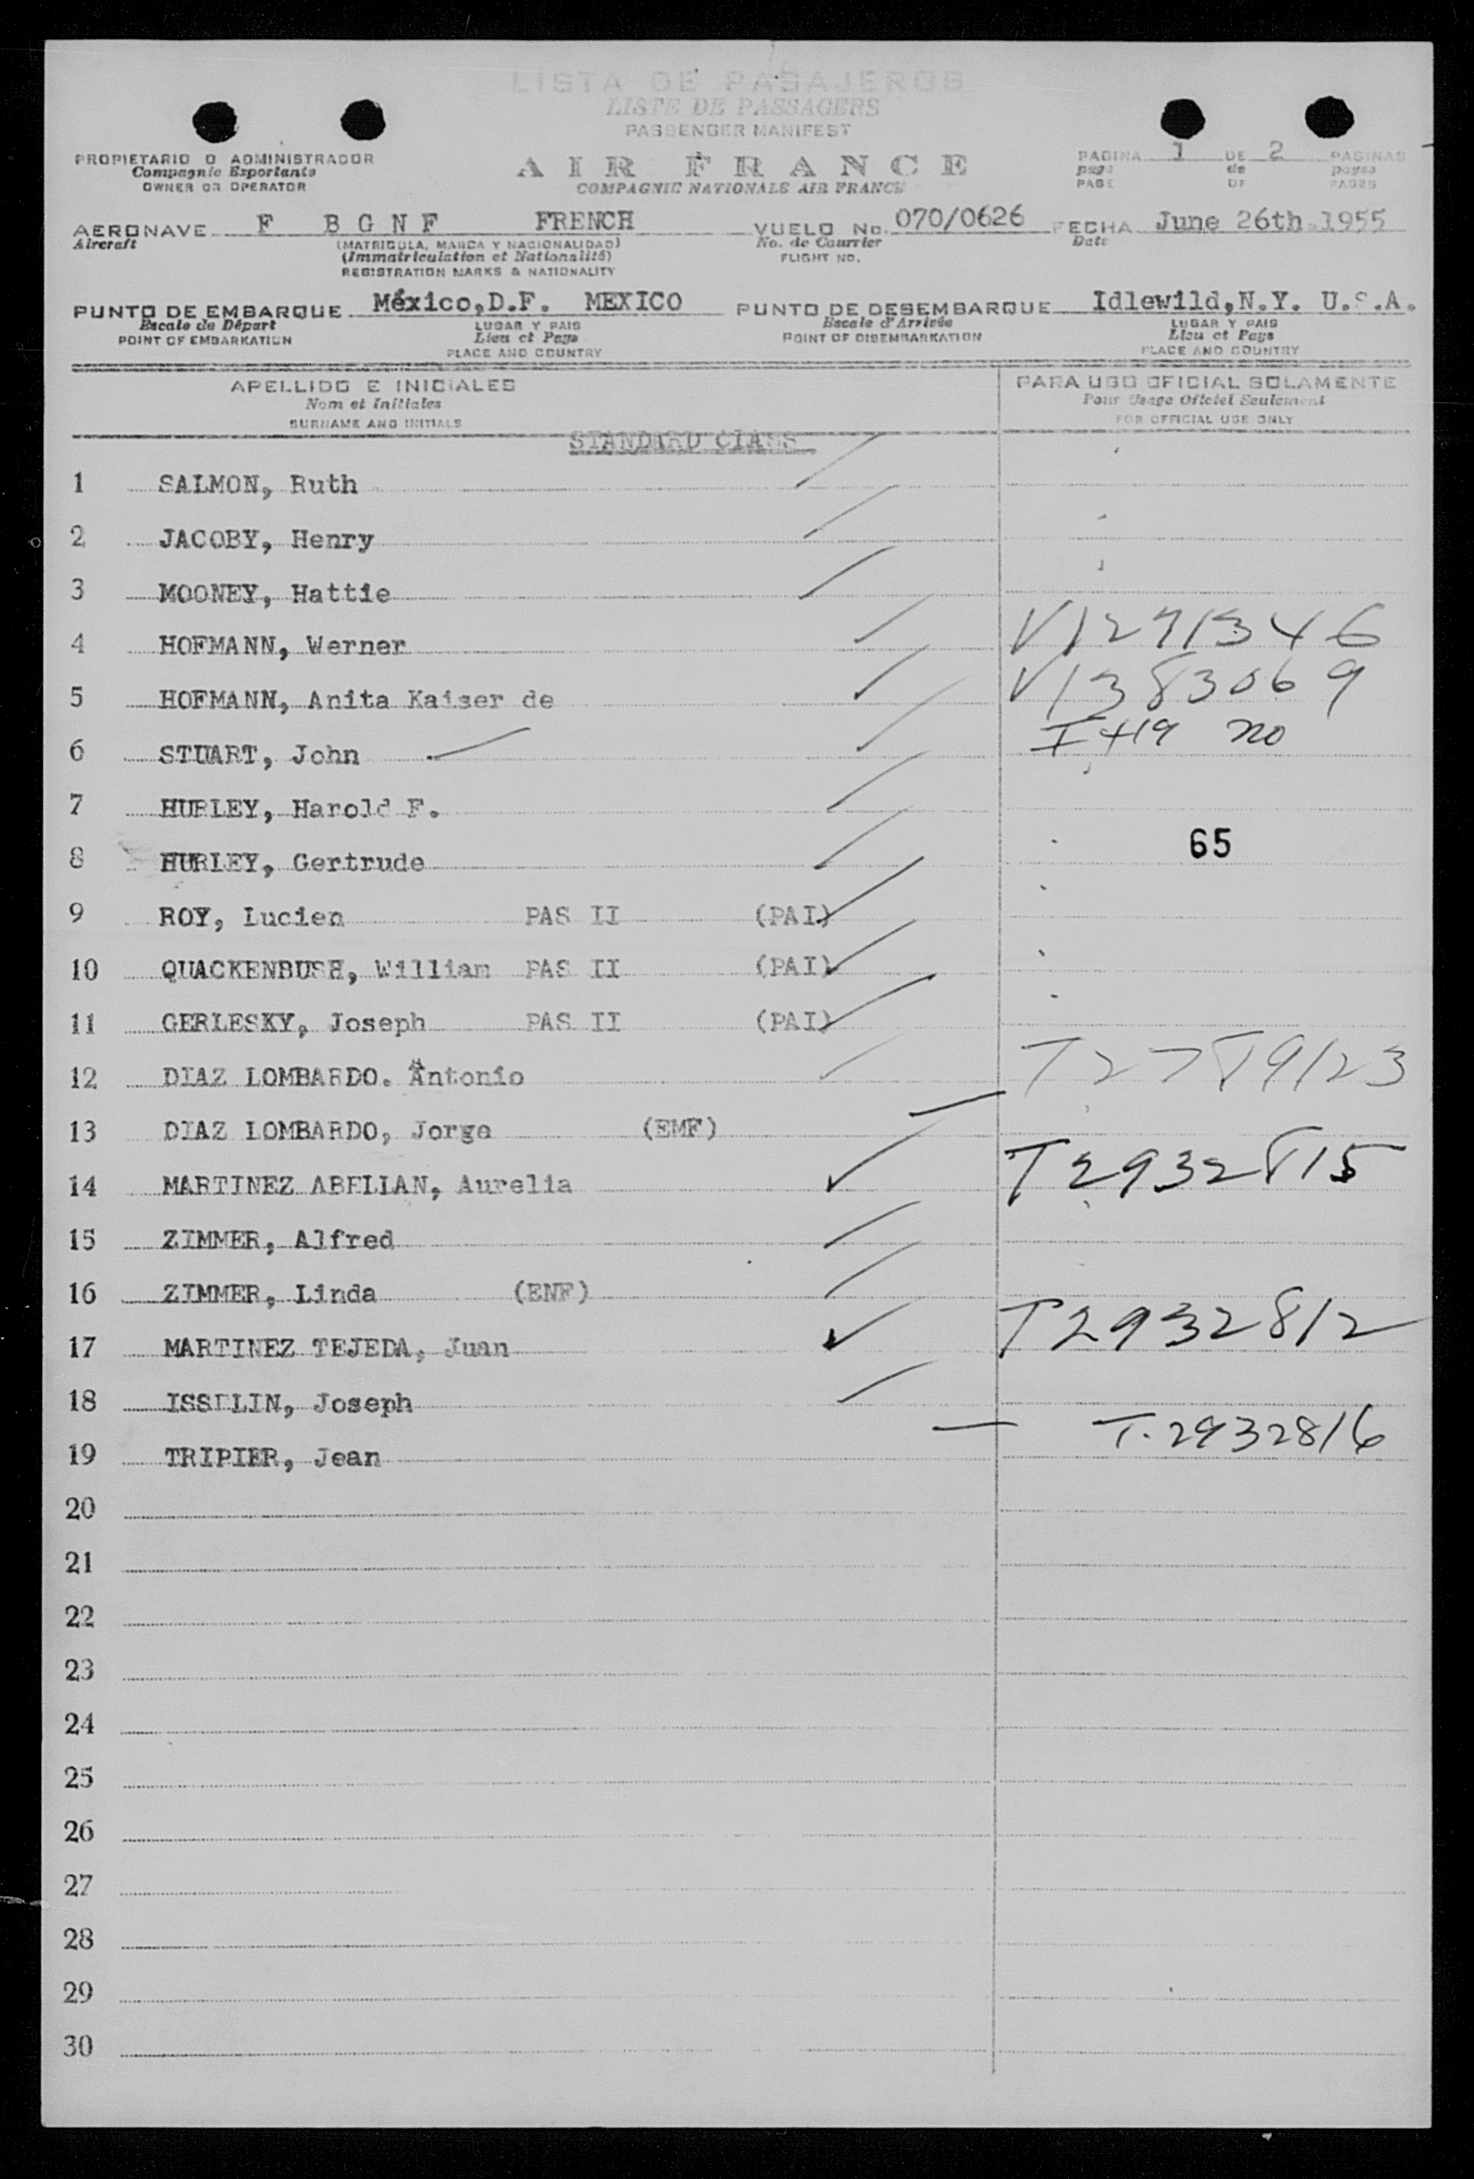 LISTA DE PASAJEROS
LISTE DE PASSAGERS
PASSENGER MANIFEST
PROPIETARIO O ADMINISTRADOR
Compagnie Exportante
OWNER OR OPERATOR
AIR FRANCE
COMPAGNIE NATIONALE AIR FRANCE
PAGINA 1 DE 2 PAGINAS
page de pages
PAGE OF PAGES
AERONAVE F BGNF FRENCH VUELO No. 070/0626 FECHA June 26th 1955
Aircraft (MATRICULA, MARCA Y NACIONALIDAD) No. de Courrier Date
(Immatriculation et Nationalité) FLIGHT NO.
REGISTRATION MARKS & NATIONALITY
PUNTO DE EMBARQUE México,D.F. MEXICO PUNTO DE DESEMBARQUE Idlewild,N.Y. U.S.A.
Escale de Départ LUGAR Y PAIS Escale d'Arrivée LUGAR Y PAIS
POINT OF EMBARKATION Lieu et Pays POINT OF DISEMBARKATION Lieu et Pays
PLACE AND COUNTRY PLACE AND COUNTRY
APELLIDO E INICIALES PARA USO OFICIAL SOLAMENTE
Nom et Initiales Pour Usage Officiel Seulement
SURNAME AND INITIALS FOR OFFICIAL USE ONLY
STANDARD CLASS
1 SALMON, Ruth
2 JACOBY, Henry
3 MOONEY, Hattie
4 HOFMANN, Werner V1271346
5 HOFMANN, Anita Kaiser de V1383069
6 STUART, John no
7 HURLEY, Harold F.
8 HURLEY, Gertrude 65
9 ROY, Lucien PAS II (PAI)
10 QUACKENBUSH, William PAS II (PAI)
11 GERLESKY, Joseph PAS II (PAI)
12 DIAZ LOMBARDO. Antonio T2789123
13 DIAZ LOMBARDO, Jorge (EMF)
14 MARTINEZ ABELLAN, Aurelia T2932815
15 ZIMMER, Alfred
16 ZIMMER, Linda (ENF)
17 MARTINEZ TEJEDA, Juan T2932812
18 ISSELIN, Joseph
19 TRIPIER, Jean T.2932816
20
21
22
23
24
25
26
27
28
29
30